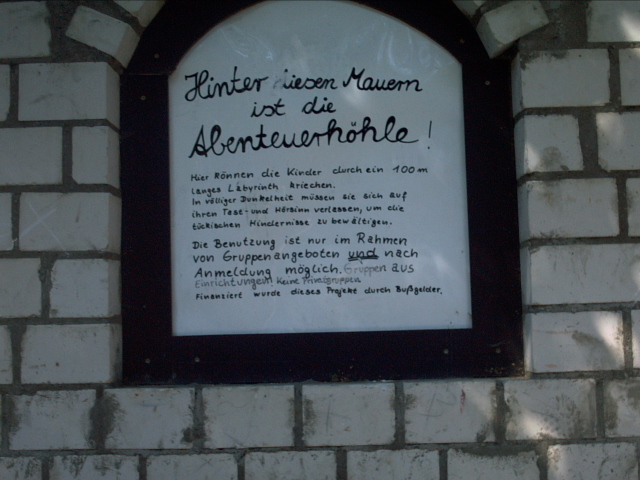 Hinter diesen Mauern
ist die
Abenteuerhöhle!
Hier können die Kinder durch ein 100 m
langes Labyrinth kriechen.
In völliger Dunkelheit müssen sie sich auf
ihren Tast- und Hörsinn verlassen, um die
tückischen Hindernisse zu bewältigen.
Die Benutzung ist nur im Rahmen
von Gruppenangeboten und nach
Anmeldung möglich. Gruppen aus
Einrichtungen! Keine Privatgruppen
Finanziert wurde dieses Projekt durch Bußgelder.